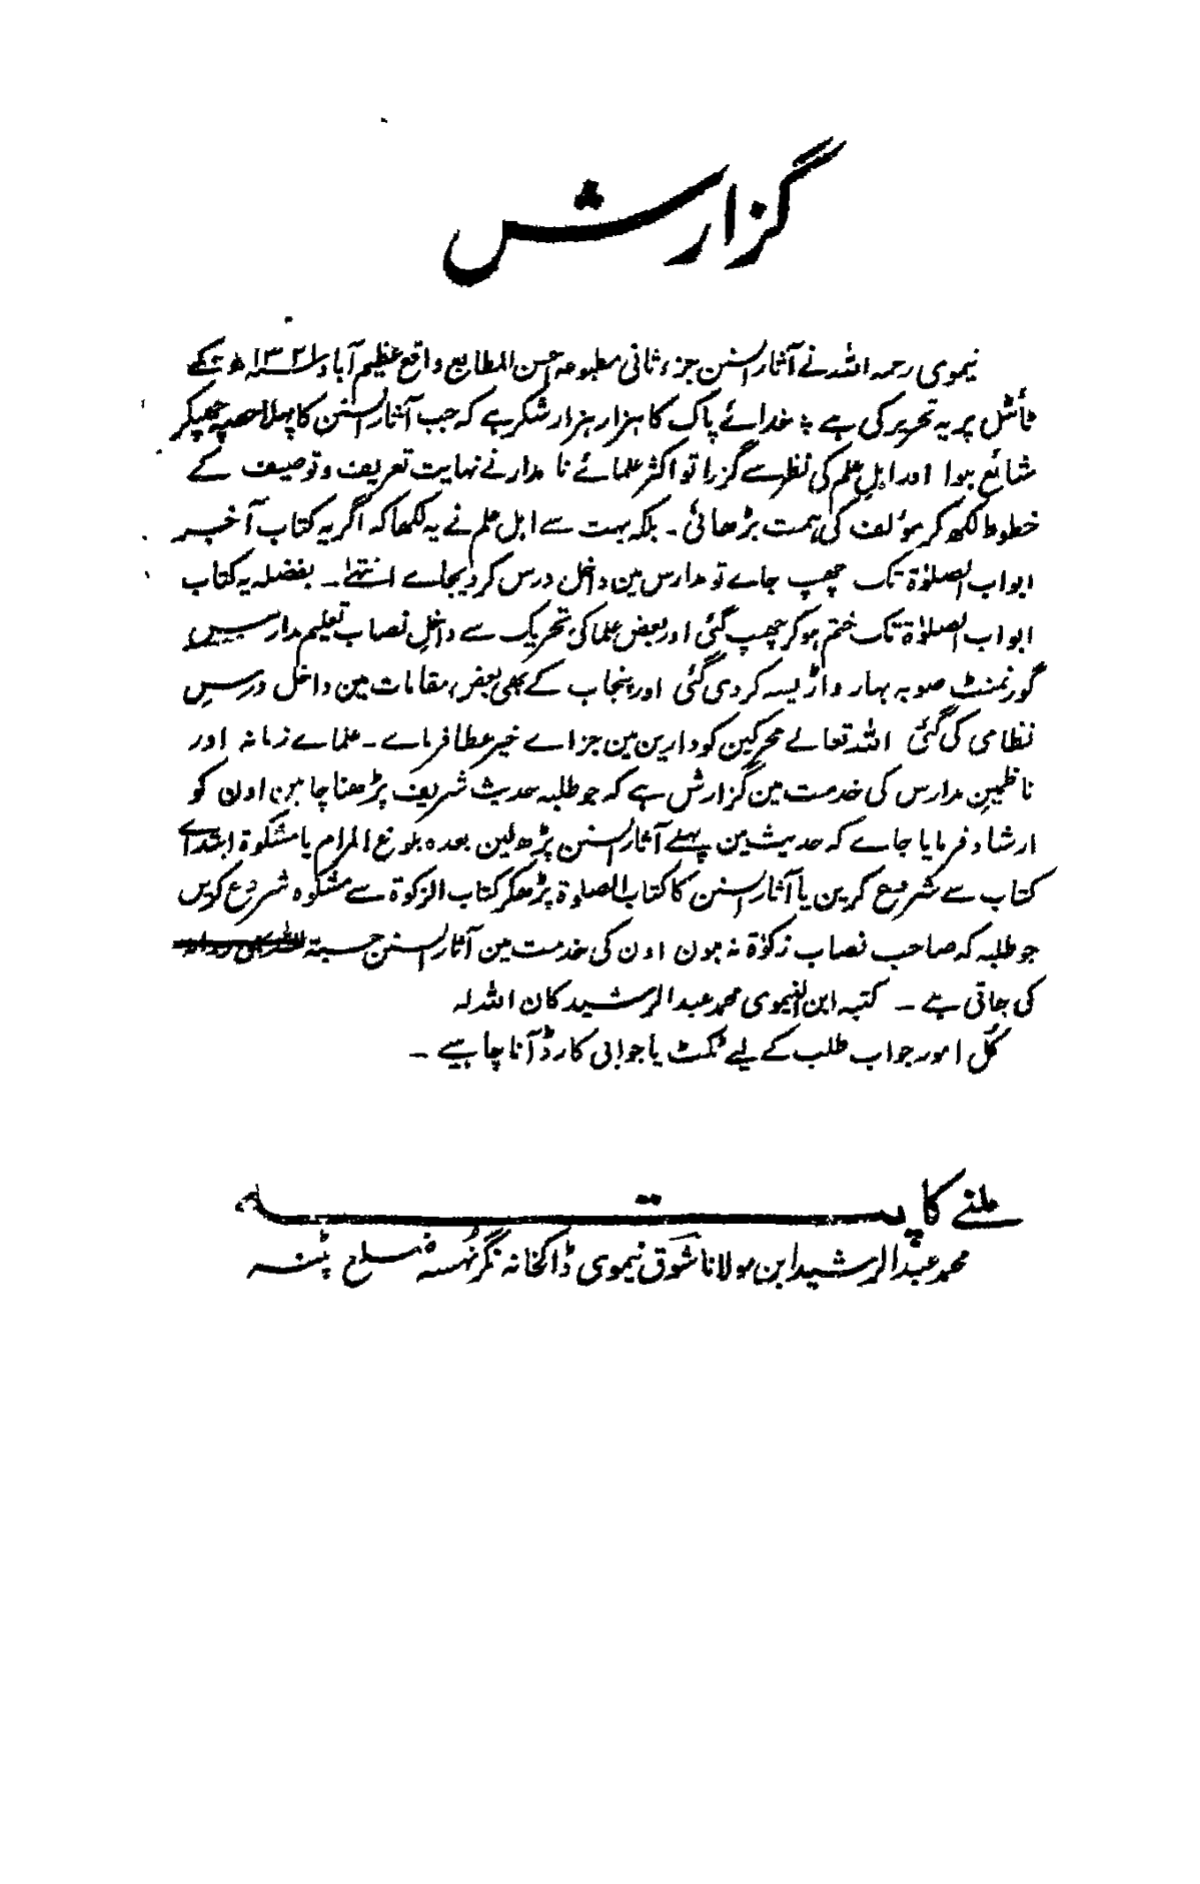 گزارش
نیموی رحمہ اللہ نے آثار السنن جزء ثانی مطبوعہ احسن المطابع واقع عظیم آباد سنہ ۱۳۲۱ھ کے
ٹائٹل پر یہ تحریر کی ہے ؞ خدائے پاک کا ہزار ہزار شکر ہے کہ جب آثار السنن کا پہلا حصہ چھپکر
شائع ہوا اور اہل علم کی نظر سے گزرا تو اکثر علمائے نامدار نے نہایت تعریف و توصیف کے
خطوط لکھ کر مؤلف کی ہمت بڑھائی ۔ بلکہ بہت سے اہل علم نے یہ لکھا کہ اگر یہ کتاب آخر
ابواب الصلوٰۃ تک چھپ جاے تو مدارس مین داخل درس کر دیجاے انتہیٰ ۔ بفضلہ یہ کتاب
ابواب الصلوٰۃ تک ختم ہو کر چھپ گئی اور بعض علما کی تحریک سے داخلِ نصاب تعلیم مدارس
گورنمنٹ صوبہ بہار و اڑیسہ کر دی گئی اور پنجاب کے بھی بعض مقامات مین داخل درسِ
نظامی کی گئی اللہ تعالے محرکین کو دارین مین جزاے خیر عطا فرماے ۔ علماے زمانہ اور
ناظمینِ مدارس کی خدمت مین گزارش ہے کہ جو طلبہ حدیث شریف پڑھنا چاہین اون کو
ارشاد فرمایا جاے کہ حدیث مین پہلے آثار السنن پڑھ لین بعدہ بلوغ المرام یا مشکوۃ ابتداے
کتاب سے شروع کرین یا آثار السنن کا کتاب الصلوۃ پڑھکر کتاب الزکوۃ سے مشکوہ شروع کریں
جو طلبہ کہ صاحب نصاب زکوٰۃ نہ ہون اون کی خدمت مین آثار السنن حسبۃ للہ روانہ
کی جاتی ہے ۔ کتبہ ابن النیموی محمد عبد الرشید کان اللہ لہ
کُل امور جواب طلب کے لیے ٹکٹ یا جوابی کارڈ آنا چاہیے ۔
ملنے کا پتہ
محمد عبد الرشید ابن مولانا شوق نیموی ڈاکخانہ نگرنہسہ ضلع پٹنہ